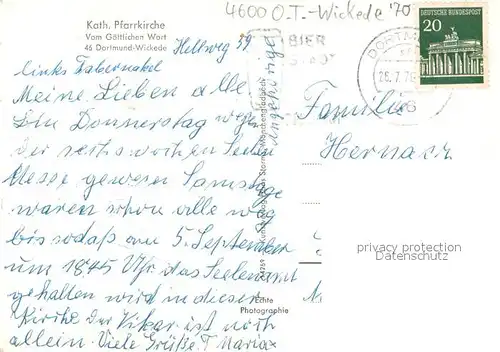 4600 O.T.-Wickede '70
Kath. Pfarrkirche
Vom Göttlichen Wort
46 Dortmund-Wickede
Hellweg 39
links Tabernakel
Meine Lieben alle.
Am Donnerstag
der sechswochen Seelen
Messe gewesen Samstage
waren schon alle weg
bis sodaß am 5. September
um 1845 Uhr das Seelenamt
gehalten wird in dieser
Kirche der Vikar ist noch
allein. Viele Grüße T Maria
Angehörige
Echte
Photographie
BIER
STADT
DORTM
28.7.70
DEUTSCHE BUNDESPOST
20
Familie
Hernacz
privacy protection
Sammlerino.de